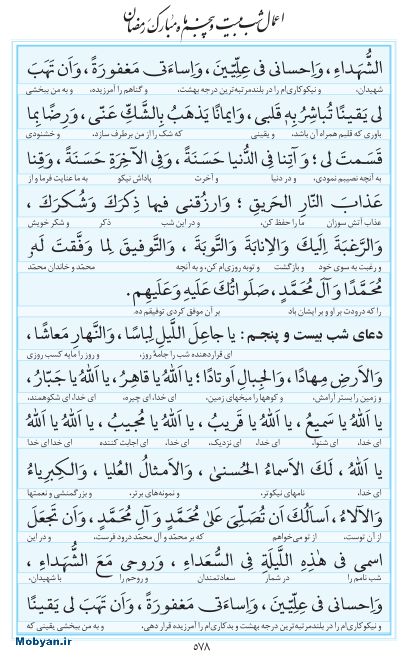 اعمال شب بیست و پنجم ماه مبارک رمضان
الشُّهَداءِ، وَاِحسانی فی عِلِّیّینَ، وَاِساءَتی مَغفورَةً، وَاَن تَهَبَ
شهیدان، و نیکوکاری‌ام را در بلندمرتبه‌ترین درجه بهشت، و گناهم را آمرزیده، و به من ببخشی
لی یَقینًا تُباشِرُ بِهِ قَلبی، وَایمانًا یَذهَبُ بِالشَّکِّ عَنّی، وَرِضًا بِما
باوری که قلبم همراه آن باشد، و یقینی که شک را از من برطرف سازد، و خشنودی
قَسَمتَ لی؛ وَآتِنا فِی الدُّنیا حَسَنَةً، وَفِی الآخِرَةِ حَسَنَةً، وَقِنا
به آنچه نصیبم نمودی، و در دنیا و آخرت پاداش نیکو به ما عنایت فرما و از
عَذابَ النّارِ الحَریقِ؛ وَارزُقنی فیها ذِکرَکَ وَشُکرَکَ،
عذاب آتش سوزان ما را حفظ کن، و در این شب ذکر و شکر خویش
وَالرَّغبَةَ اِلَیکَ وَالاِنابَةَ وَالتَّوبَةَ، وَالتَّوفیقَ لِما وَفَّقتَ لَهُ
و رغبت به سوی خود و بازگشت و توبه روزی‌ام کن، و به آنچه محمّد و خاندان محمّد
مُحَمَّدًا وَآلَ مُحَمَّدٍ، صَلَواتُکَ عَلَیهِ وَعَلَیهِم.
را که درودت بر او و بر ایشان باد بر آن موفق کردی توفیقم ده.
دعای شب بیست و پنجم: یا جاعِلَ اللَّیلِ لِباسًا، وَالنَّهارِ مَعاشًا،
ای قراردهنده شب را جامهٔ روز، و روز را مایه کسب روزی
وَالاَرضِ مِهادًا، وَالجِبالِ اَوتادًا؛ یا اَللهُ یا قاهِرُ، یا اَللهُ یا جَبّارُ،
و زمین را بستر آرامش، و کوهها را میخهای زمین، ای خدا، ای چیره، ای خدا، ای شکوهمند،
یا اَللهُ یا سَمیعُ، یا اَللهُ یا قَریبُ، یا اَللهُ یا مُجیبُ، یا اَللهُ یا اَللهُ
ای خدا، ای شنوا، ای خدا، ای نزدیک، ای خدا، ای اجابت کننده ای خدا ای خدا
یا اَللهُ، لَکَ الاَسماءُ الحُسنیٰ، وَالاَمثالُ العُلیا، وَالکِبریاءُ
ای خدا، نامهای نیکوتر، و نمونه‌های برتر، و بزرگمنشی و نعمتها
وَالآلاءُ، اَسأَلُکَ اَن تُصَلِّیَ عَلیٰ مُحَمَّدٍ وَآلِ مُحَمَّدٍ، وَاَن تَجعَلَ
از آن توست، از تو می‌خواهم که بر محمّد و آل محمّد درود فرست، و در این
اسمی فی هٰذِهِ اللَّیلَةِ فِی السُّعَداءِ، وَروحی مَعَ الشُّهَداءِ،
شب نامم را در شمار سعادتمندان و روحم را با شهیدان،
وَاِحسانی فی عِلِّیّینَ، وَاِساءَتی مَغفورَةً، وَاَن تَهَبَ لی یَقینًا
و نیکوکاری‌ام را در بلندمرتبه‌ترین درجه بهشت و بدکاری‌ام را آمرزیده قرار دهی، و به من ببخشی یقینی که
۵۷۸
Mobyan.ir